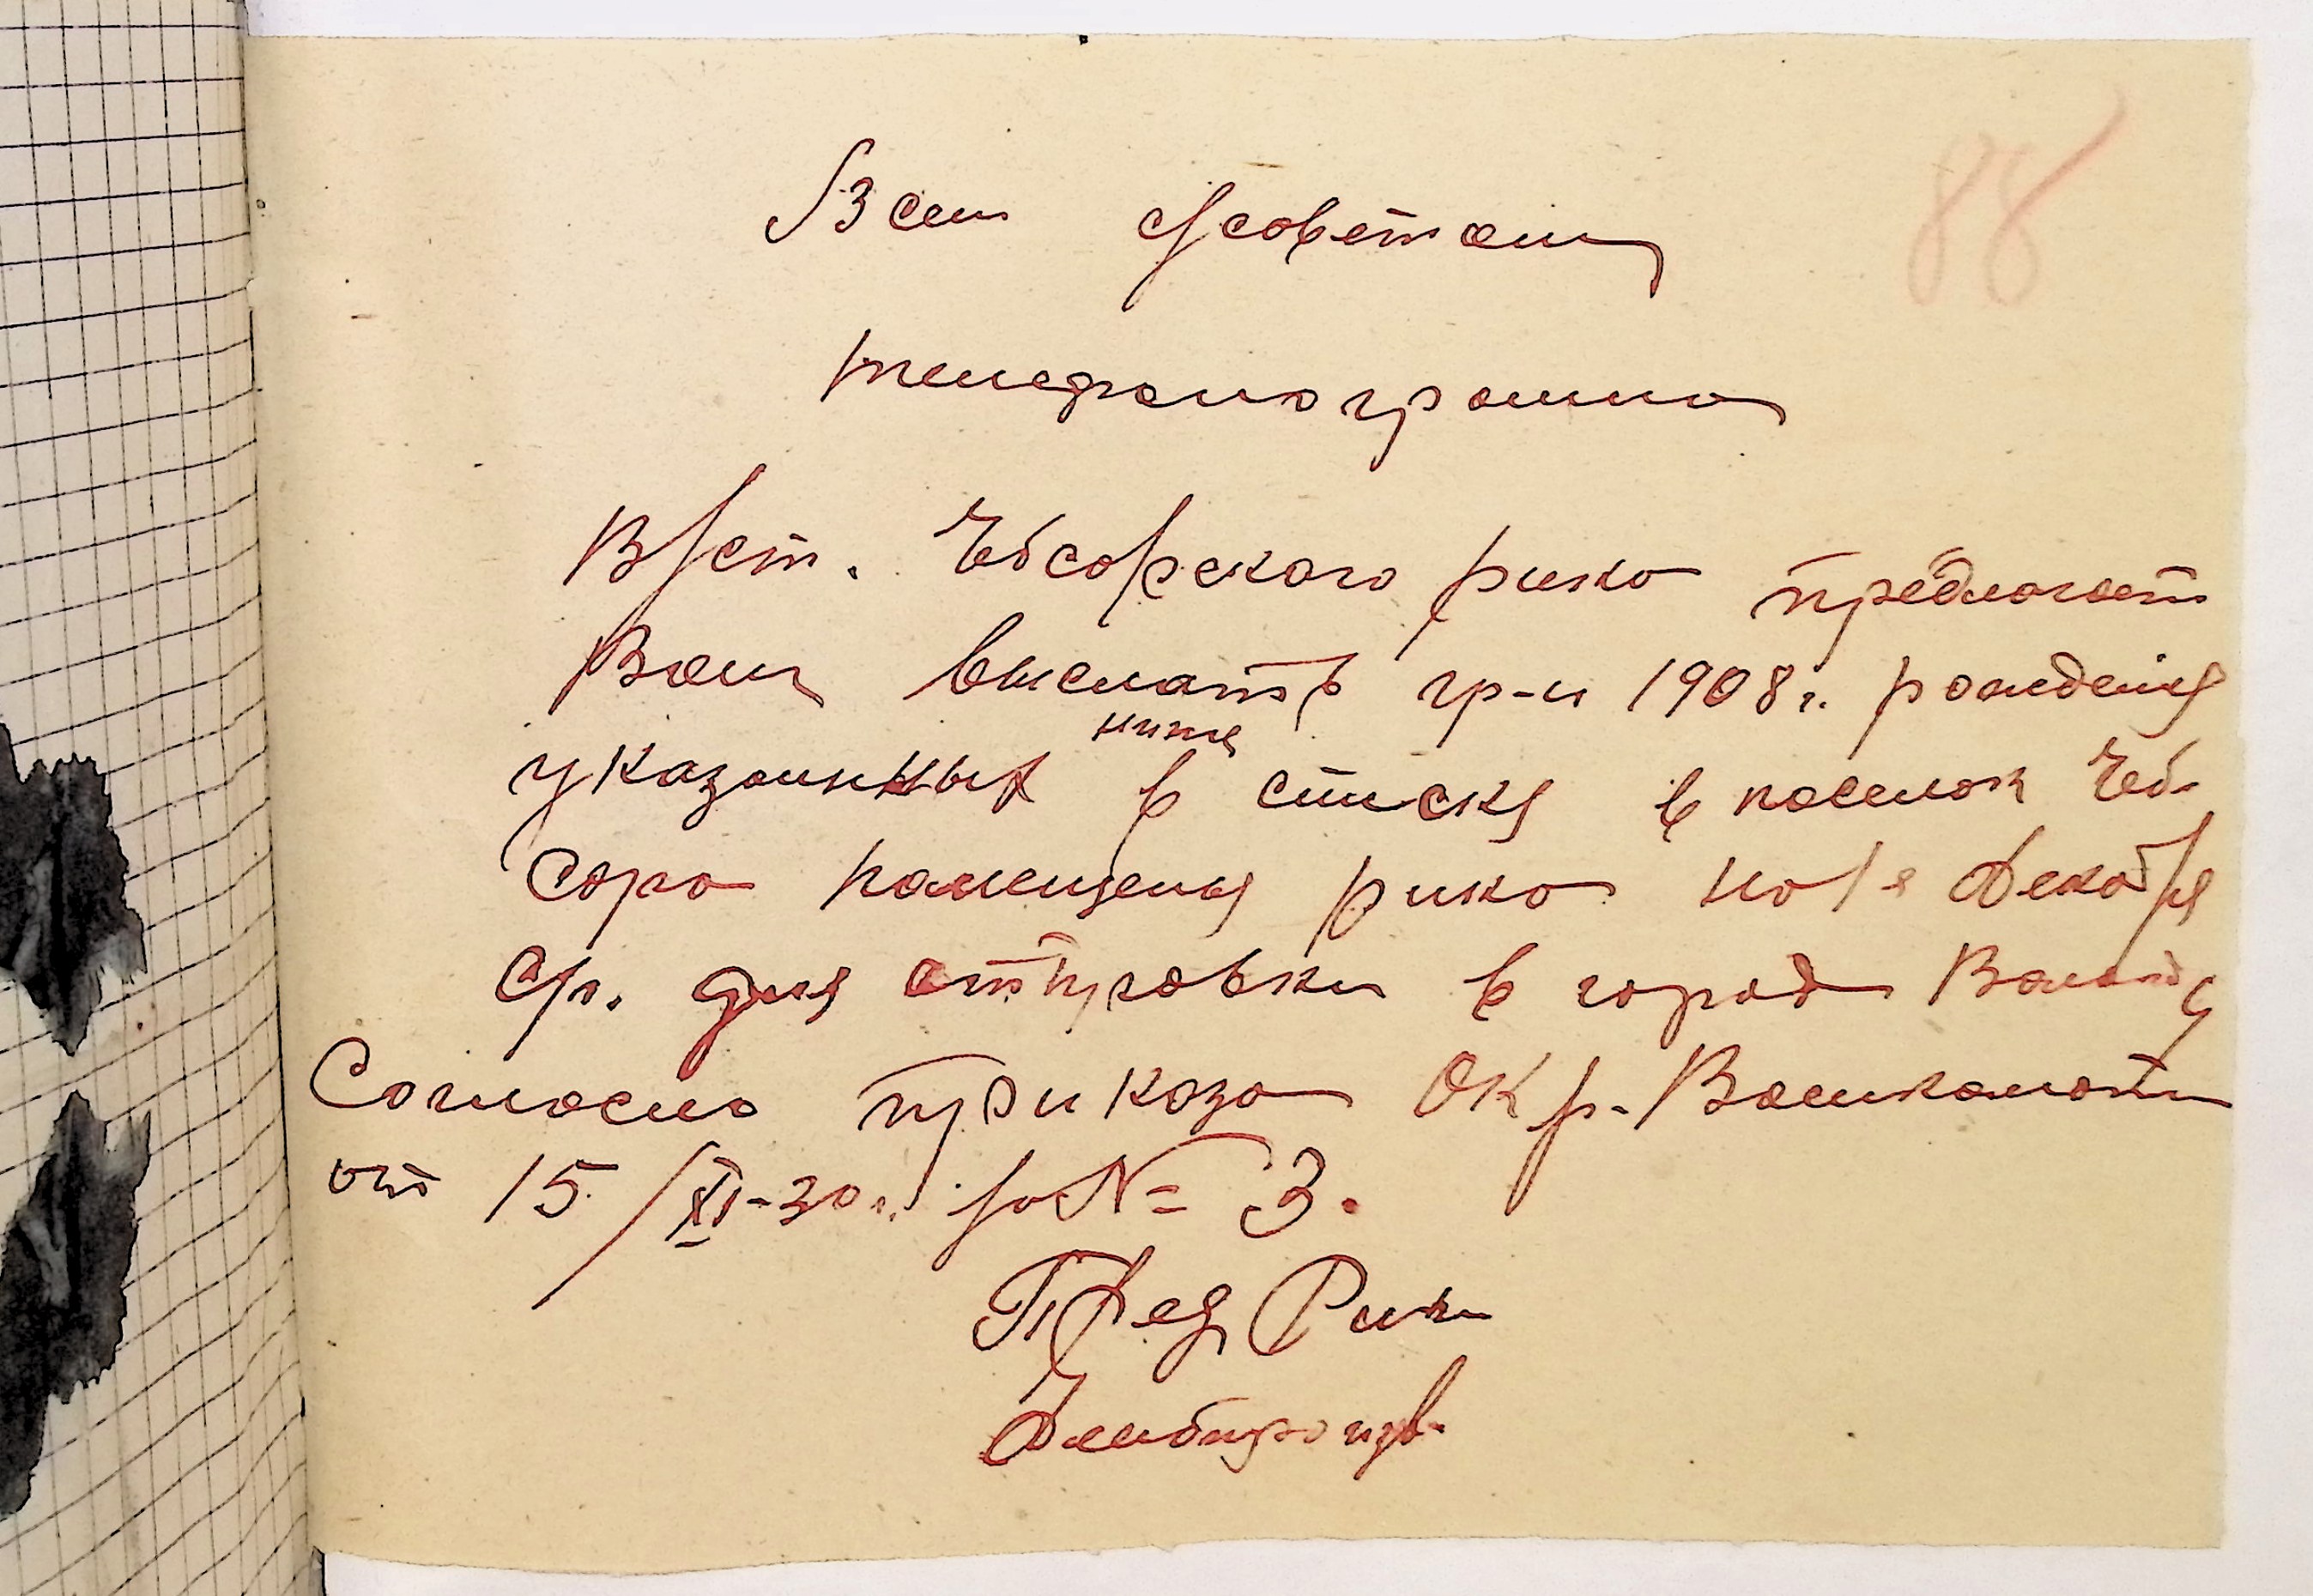 88
Всем с/советам
телефонограмма
В/ст. Чебсарского рика предлогает
Вам выслать гр-н 1908 г. рождения
ниже
указанных в списке в поселок Чеб-
сара помещения рика на 1-е Декабря
с/г. для отправки в город Вологду
Согласно приказа Окр. Военкомата
от 15/XI-30 г. за № 3.
Пред Рик